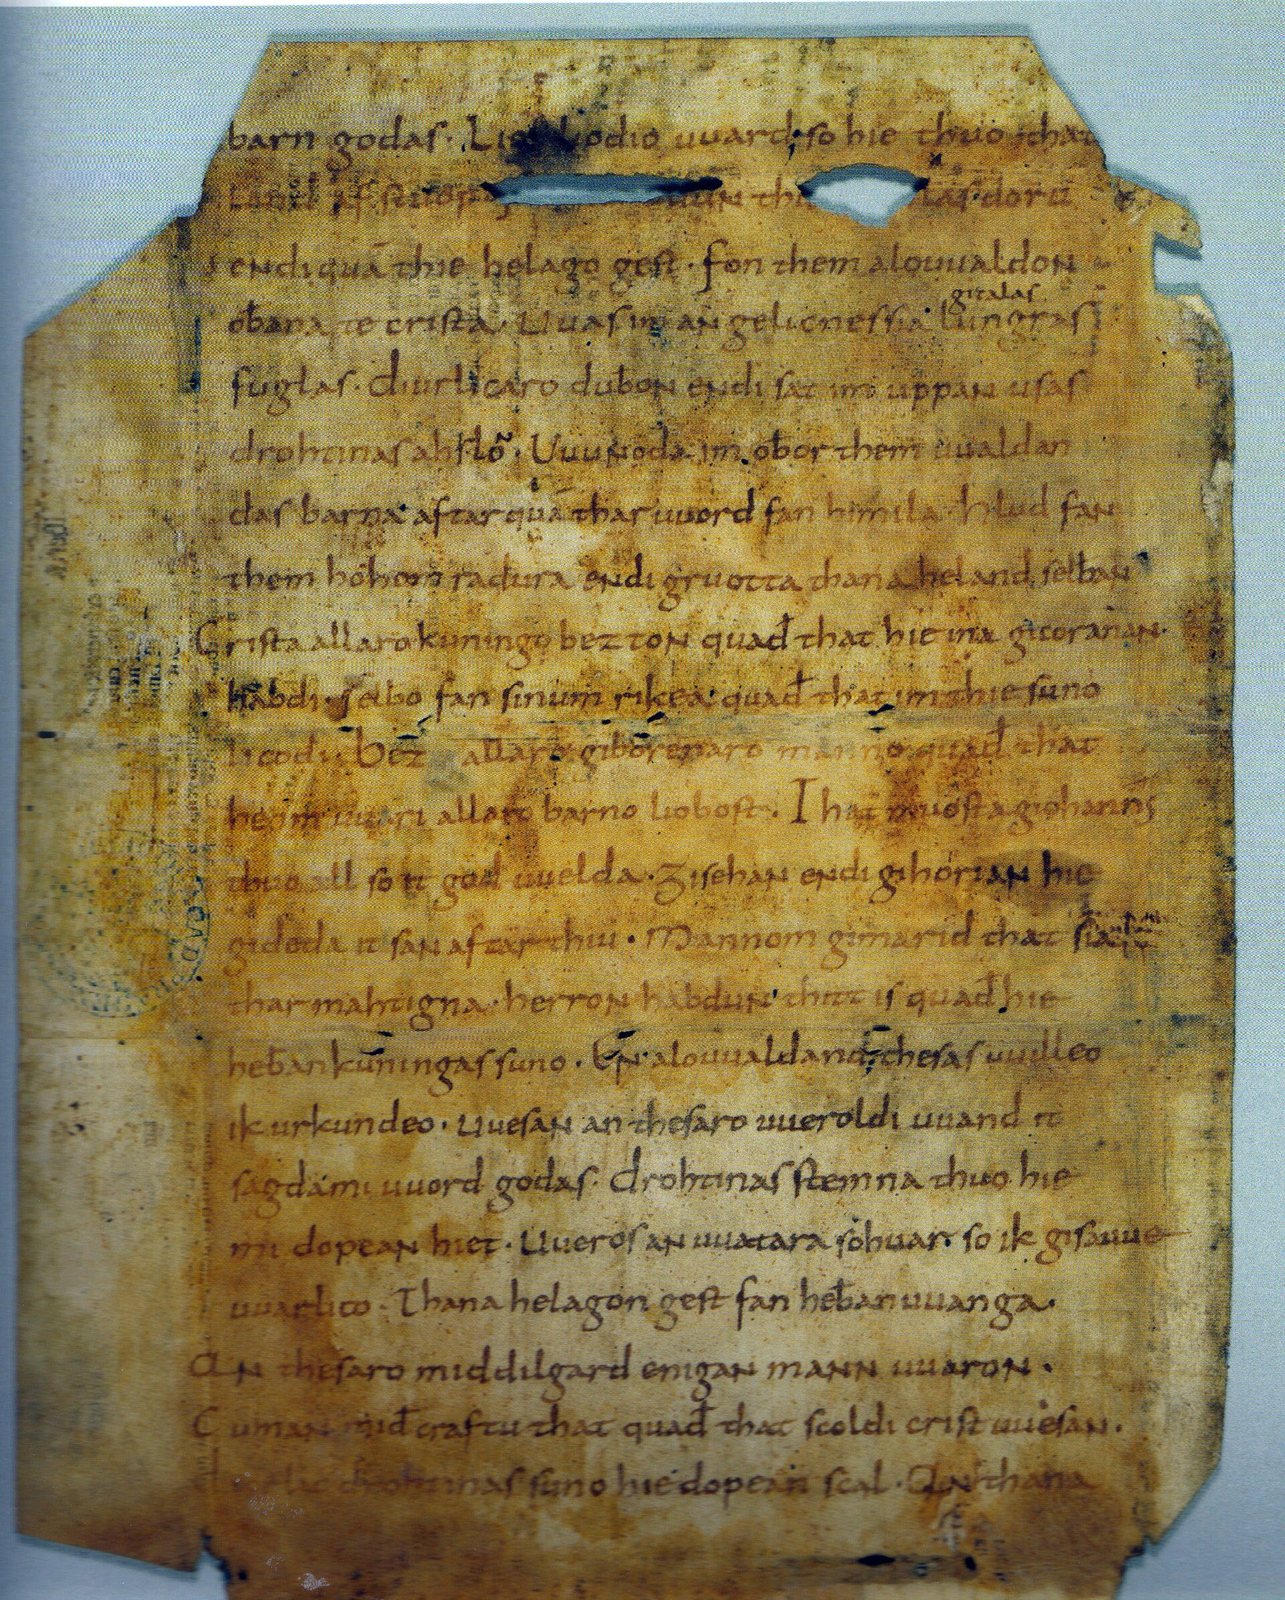 barn godas · Li liodio uuard so hie thuo that
land af stuop thuo doru
endi quā thie helago gest · fon them alouualdon
oƀana te crista · Uuas im an gelicnessia lungras gitalas
fuglas · diurlicaro duƀon endi sat im uppan usas
drohtinas ahslō · Uuunoda im oƀor them uualdan
das barna aftar quā thar uuord fan himila hlud fan
them hohom radura endi gruotta thana heland selƀan
Crista allaro kuningo bezton quađ that hie ina gicoranan
habdi selƀo fan sinum rikea quađ that im thie suno
licodi bez allaro giborenaro manno quađ that
he im uuari allaro barno liobost · That muosta giohannes
thuo all so it god uuelda · gisehan endi gihorian hie
gideda it san aftar thiu · Mannom gimarid that sia
thar mahtigna · herron habdun thitt is quađ hie
heƀankuningas suno · En alouualdand thesas uuilleo
ik urkundeo · Uuesan an thesaro uueroldi uuand it
sagda mi uuord godas · drohtinas stemna thuo hie
mi dopean hiet · Uueros an uuatara sohuar so ik gisauue
uuarlico · Thana helagon gest fan heƀanuuanga ·
An thesaro middilgard enigan mann uuaron ·
Cuman mid craftu that quađ that scoldi crist uuesan ·
drohtinas suno hie dopean scal · An thana